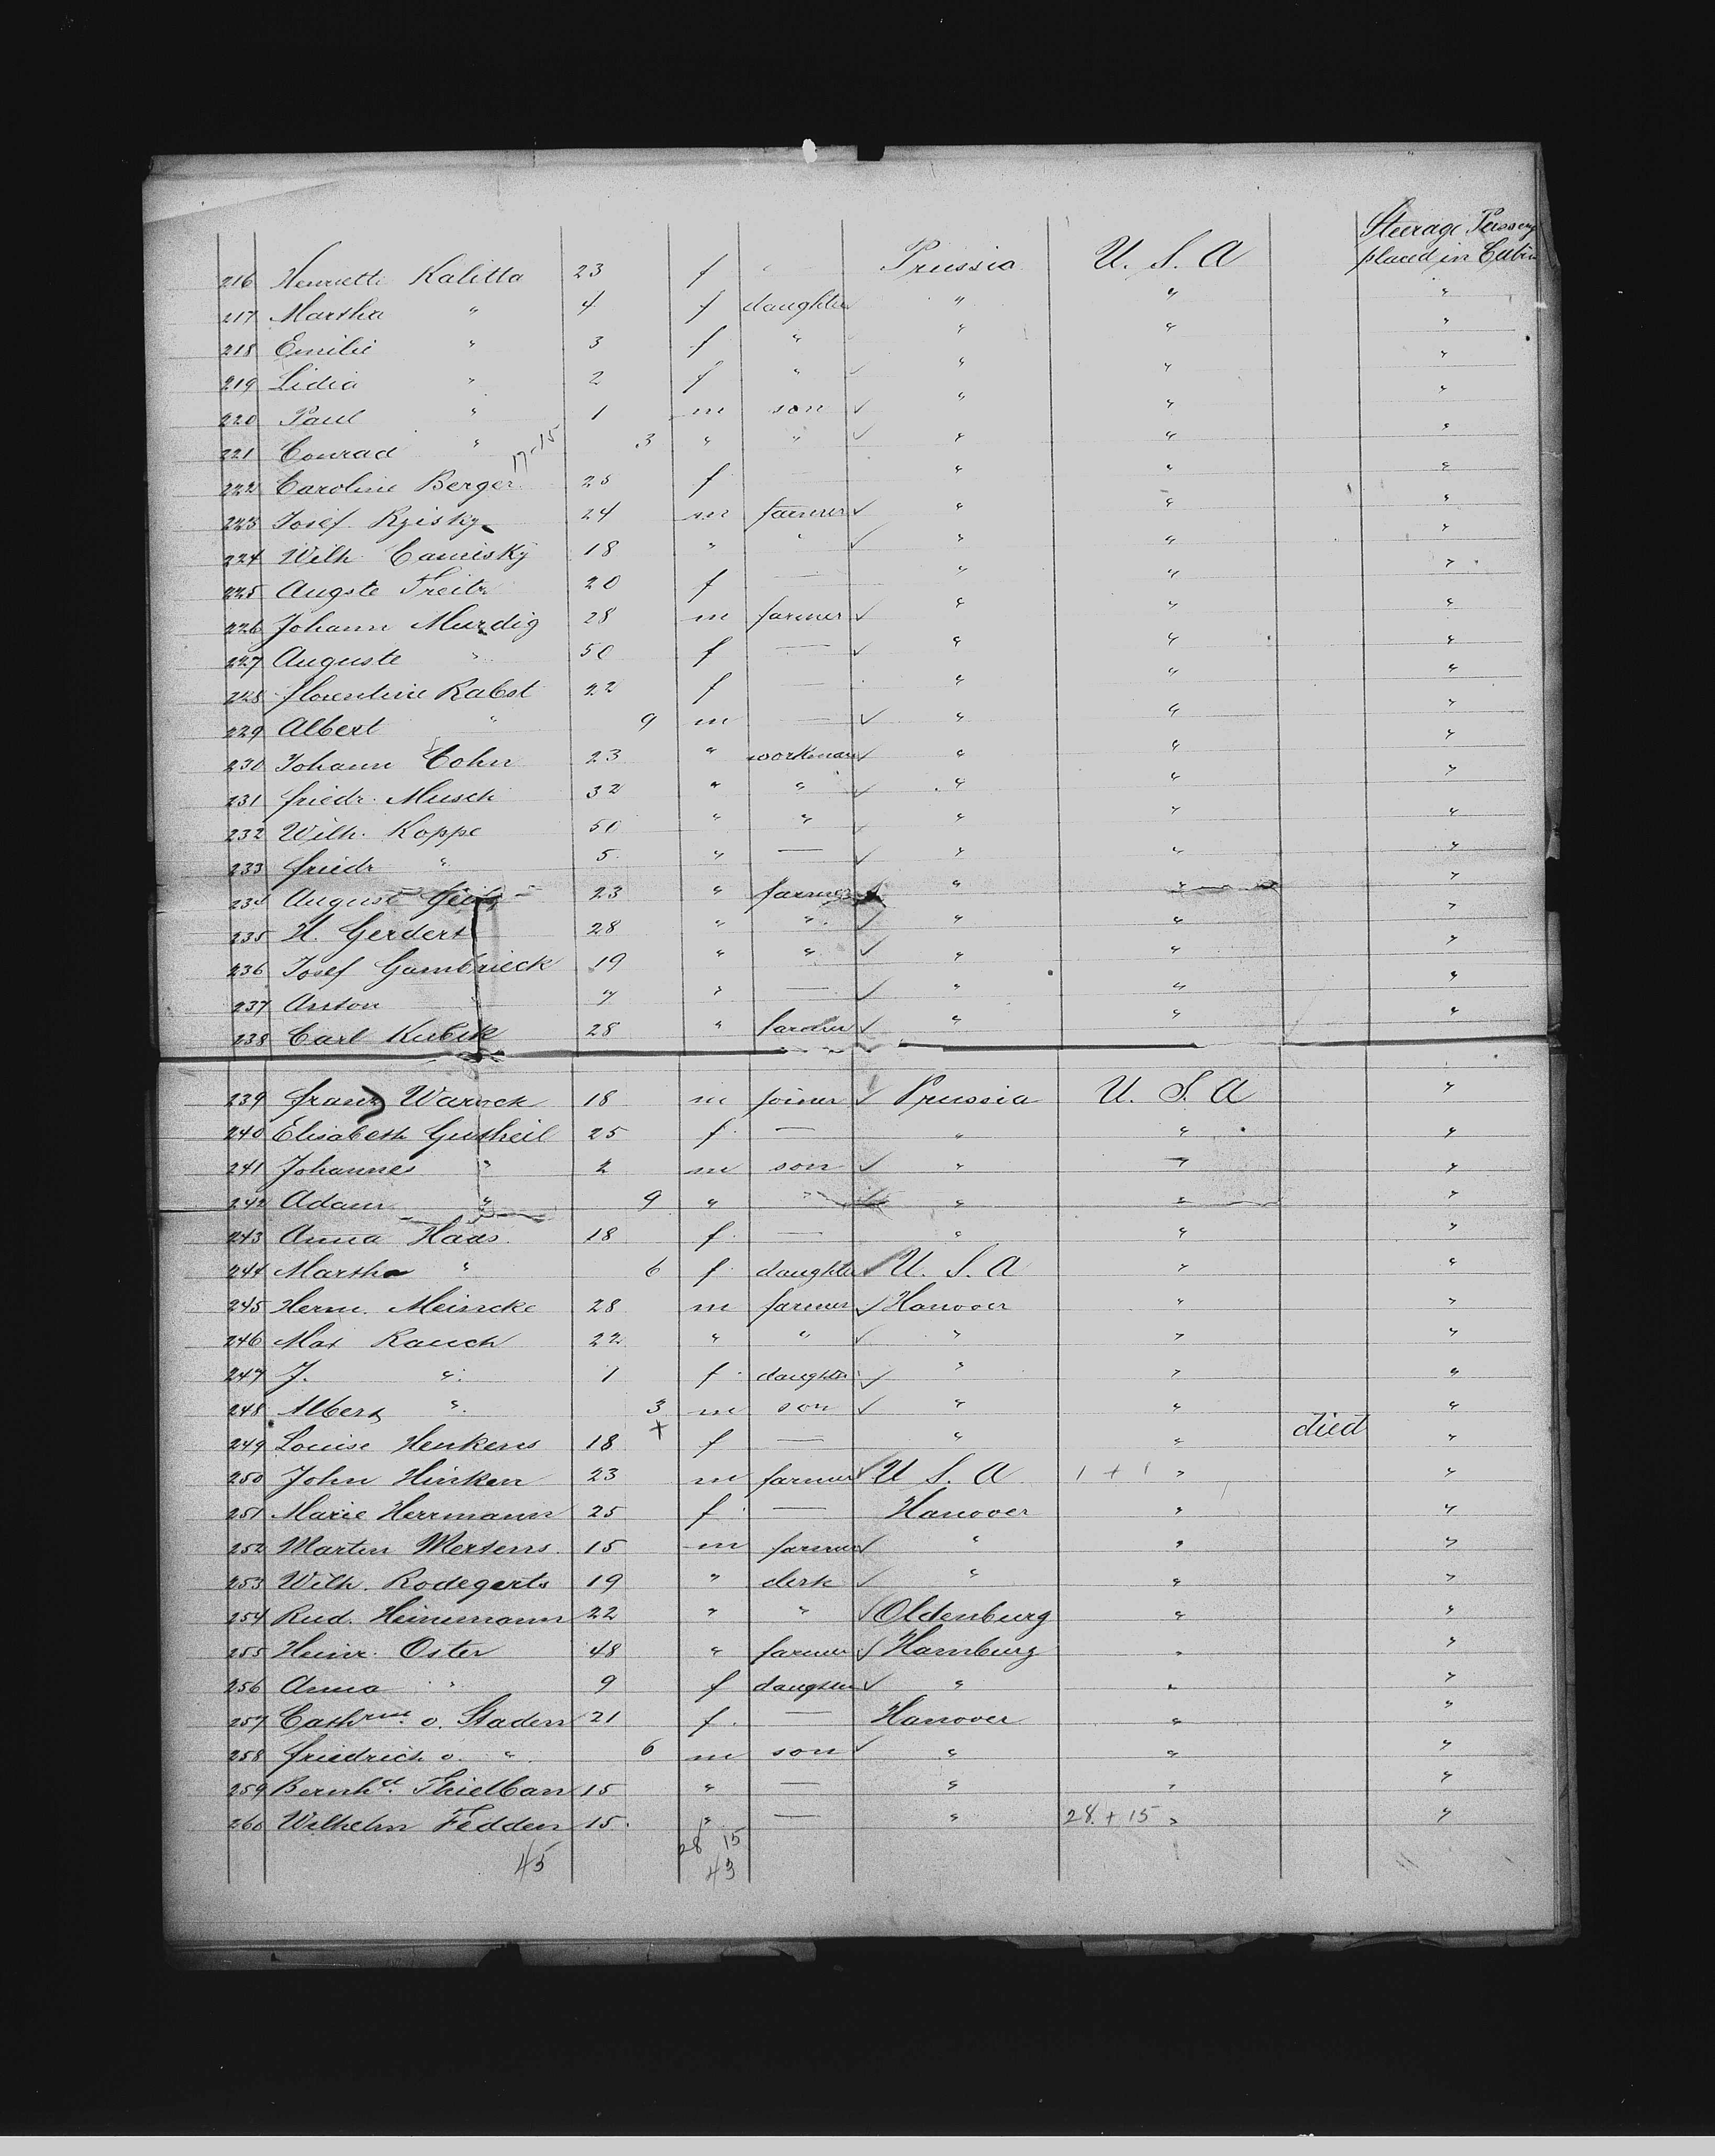 Steerage Passeng
216 Henriette Kalitta 23 f Prussia U. S. A placed in Cabin
217 Martha " 4 f daughter " " "
218 Emilie " 3 f " " " "
219 Lidia " 2 f " ✓ " " "
220 Paul " 1 m son ✓ " " "
221 Conrad " 3 " " ✓ " " "
17-15
222 Caroline Berger 28 f " " "
223 Josef 24 m farmer ✓ " " "
224 Wilh. Camisky 18 " " ✓ " " "
225 Augste 20 f — " " "
226 Johann Murdig 28 m farmer ✓ " " "
227 Auguste " 50 f — ✓ " " "
228 Florentine Rabst 22 f — " " "
229 Albert " 9 m — ✓ " " "
230 Johann Cohn 23 " workman ✓ " " "
231 Friedr. Musch 32 " " ✓ " " "
232 Wilh. Koppe 50 " " ✓ " " "
233 Friedr " 5 " — ✓ " " "
234 August 23 " farmer ✓ " " "
235 H. Gerdert 28 " " ✓ " " "
236 Josef Gambrieck 19 " " ✓ " " "
237 Anton " 7 " — ✓ " " "
238 Carl Kubik 28 " farmer ✓ " " "
239 Franz Warock 18 m joiner ✓ Prussia U. S. A "
240 Elisabeth Gutheil 25 f — " " "
241 Johannes " 2 m son ✓ " " "
242 Adam " 9 " " ✓ " " "
243 Anna Haas 18 f — " " "
244 Martha " 6 f daughter ✓ U. S. A " "
245 Herm. Meincke 28 m farmer ✓ Hanover " "
246 Max Rauch 22 " " ✓ " " "
247 J. " 1 f daughter ✓ " " "
248 Albert " 3 m son ✓ " " "
249 Louise Henkens 18 + f — " " died "
250 John Hinken 23 m farmer ✓ U S. A 1 + 1 " "
251 Marie Herrmann 25 f — Hanover " "
252 Martin Mertens 15 m farmer ✓ " " "
253 Wilh. Rodegerts 19 " clerk ✓ " " "
254 Rud. Heinemann 22 " " ✓ Oldenburg " "
255 Heinr. Oster 48 " farmer ✓ Hamburg " "
256 Anna " 9 f daughter ✓ " " "
257 Cathrine v. Staden 21 f — Hanover " "
258 Friedrich v. " 6 m son ✓ " " "
259 Bernhd. Thielbar 15 " — " " "
260 Wilhelm Fedden 15 " — " 28 + 15 " "
45 28 15
43